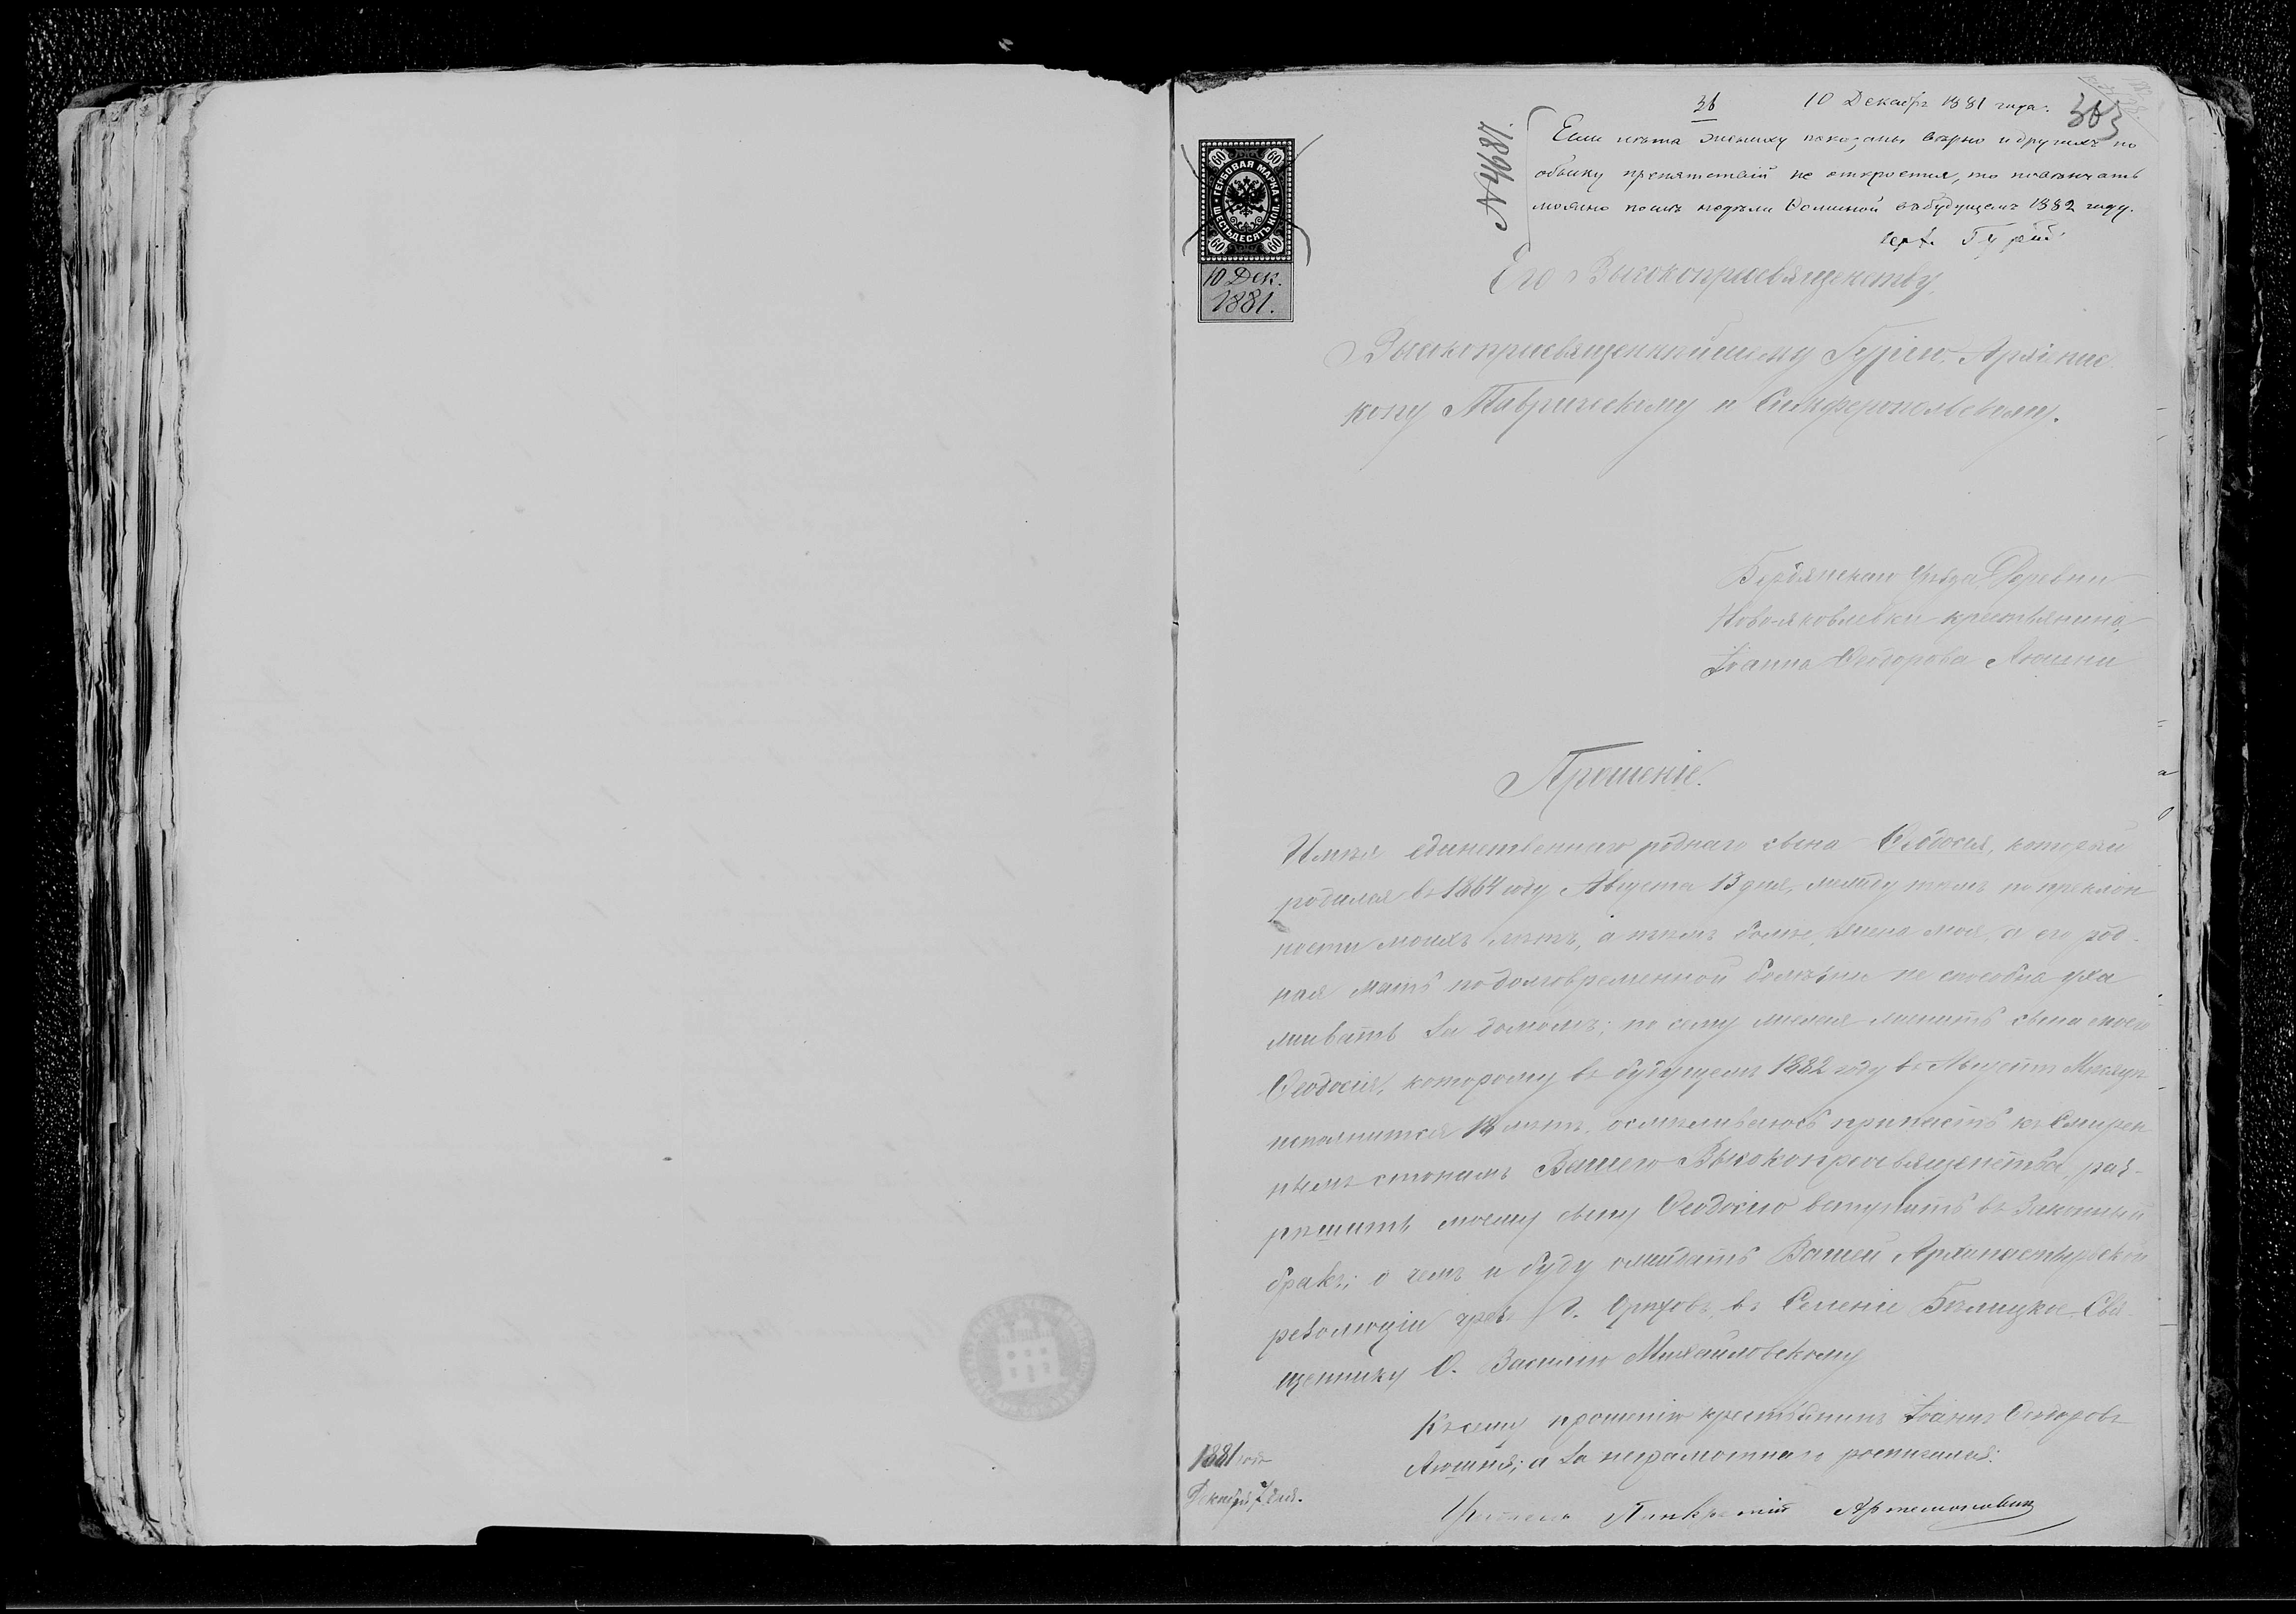 36 10 Декабр 1881 года.
363
№ 4981.
Если лѣта жениху показаны вѣрно и другихъ по
обыску препятствій не откроется, то повѣнчать
можно послѣ недѣли Ѳоминой въ будущемъ 1882 году.
Арх. Гурій
60 60
ГЕРБОВАЯ МАРКА
ШЕСТЬДЕСЯТЪ КОП.
60 60
10 Дек.
1881.
Его Высокопреосвященству,
Высокопреосвященнѣйшему Гурію, Архіепис
копу Таврическому и Симферопольскому.
Бердянскаго Уѣзда Деревни
Новояковлевки крестьянина,
Іоанна Ѳеодорова
Прошеніе.
Имѣя единственнаго роднаго сына Ѳеодосія, который
родился въ 1864 году Августа 13 дня, между тѣмъ по преклон
ности моихъ лѣтъ, а тѣмъ болѣе, жена моя, а его род-
ная мать по долговременной болѣзни не способна уха
живать за домомъ; по сему желая женить сына моего
Ѳеодосія, которому въ будущемъ 1882 году въ Августѣ Мѣсяцѣ
исполнится 18 лѣтъ, осмѣливаюсь припасть къ Смирен
нымъ стопамъ Вашего Высокопреосвященства, раз-
рѣшить моему сыну Ѳеодосію вступить въ Законный
бракъ; о чемъ и буду ожидать Вашей Архипастырской
резолюціи чрезъ Г. Орѣховъ, въ Селеніе Бѣлицкое Свя
щеннику О. Василію Михайловскому
Къ сему прошенію крестьянинъ Іоаннъ Ѳеодоровъ
а за неграмотнаго росписался:
Панкратій Артемоновичъ
1881 года
Декабря 7 дня.